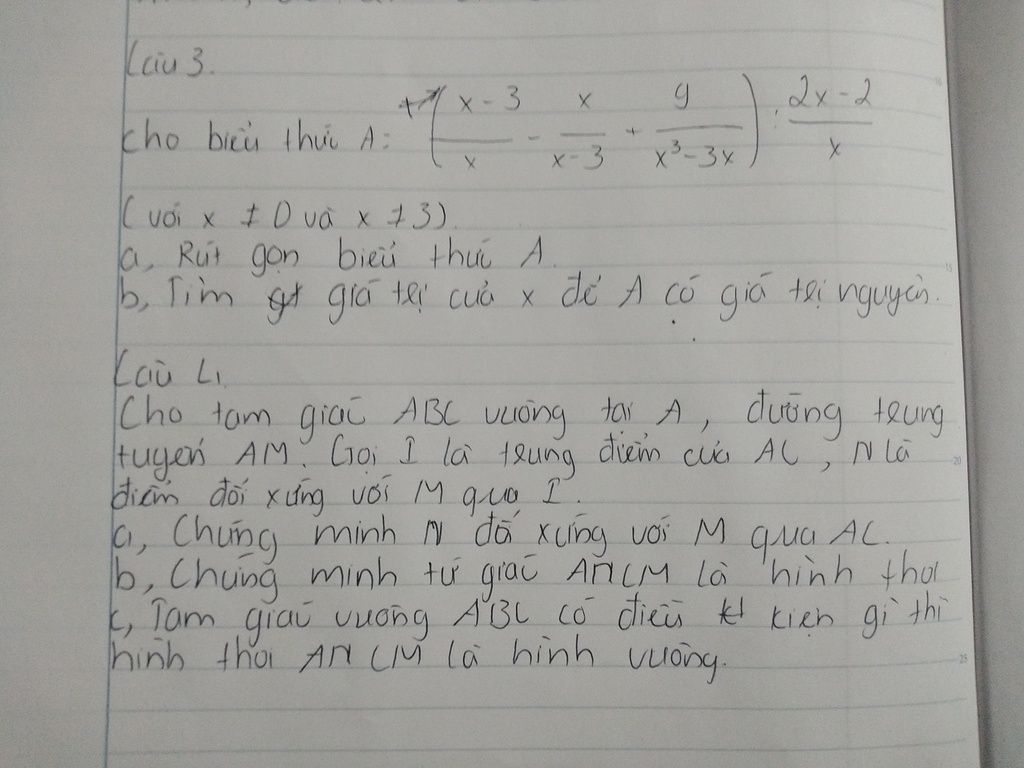 Câu 3.
Cho biểu thức A: (x-3/x - x/x-3 + 9/x³-3x) : 2x-2/x
(với x ≠ 0 và x ≠ 3).
a, Rút gọn biểu thức A.
b, Tìm giá trị của x để A có giá trị nguyên.
Câu 4.
Cho tam giác ABC vuông tại A, đường trung
tuyến AM. Gọi I là trung điểm của AC, N là
điểm đối xứng với M qua I.
a, Chứng minh N đối xứng với M qua AC.
b, Chứng minh tứ giác ANCM là hình thoi
c, Tam giác vuông ABC có điều kiện gì thì
hình thoi ANCM là hình vuông.